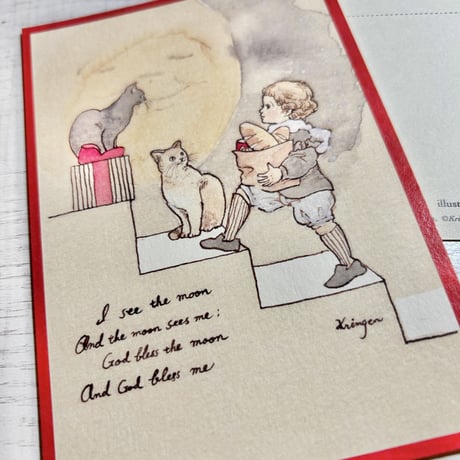 I see the moon
And the moon sees me;
God bless the moon
And God bless me
Kringen
illust
©Kri